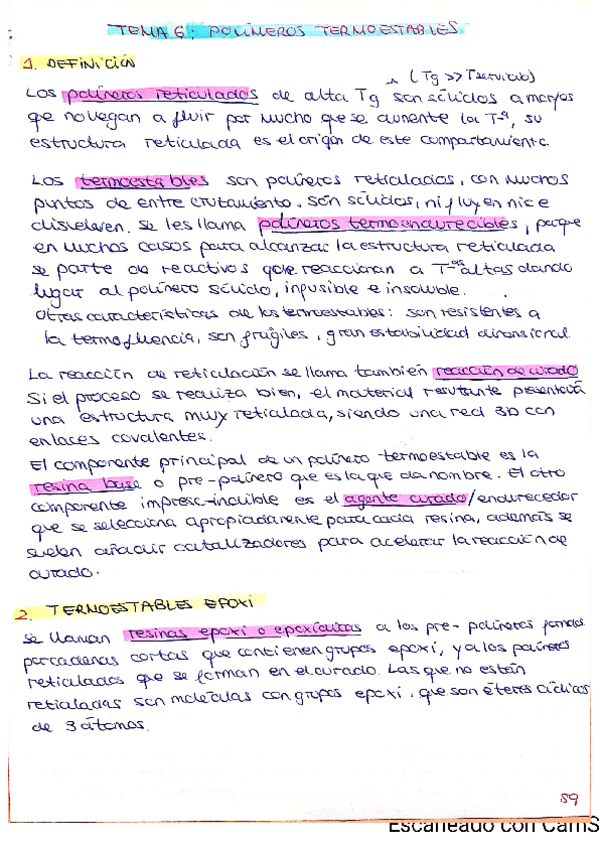 TEMA 6: POLÍMEROS TERMOESTABLES
1. DEFINICIÓN
(Tg >> Tservicio)
Los polímeros reticulados de alta Tg son sólidos amorfos
que no llegan a fluir por mucho que se aumente la Tª, su
estructura reticulada es el origen de este comportamiento.
Los termoestables son polímeros reticulados, con muchos
puntos de entrecruzamiento. Son sólidos, ni fluyen ni se
disuelven. Se les llama polímeros termoendurecibles, porque
en muchos casos para alcanzar la estructura reticulada
se parte de reactivos que reaccionan a Tªs altas dando
lugar al polímero sólido, infusible e insoluble.
Otras características de los termoestables: son resistentes a
la termofluencia, son frágiles, gran estabilidad dimensional.
La reacción de reticulación se llama también reacción de curado
Si el proceso se realiza bien, el material resultante presentará
una estructura muy reticulada, siendo una red 3D con
enlaces covalentes.
El componente principal de un polímero termoestable es la
resina base o pre-polímero que es la que da nombre. El otro
componente imprescindible es el agente curado/endurecedor
que se selecciona apropiadamente para cada resina, además se
suelen añadir catalizadores para acelerar la reacción de
curado.
2. TERMOESTABLES EPOXI
Se llaman resinas epoxi o epoxídicas a los pre-polímeros formados
por cadenas cortas que contienen grupos epoxi, y a los polímeros
reticulados que se forman en el curado. Las que no están
reticuladas son moléculas con grupos epoxi, que son éteres cíclicos
de 3 átomos.
89
Escaneado con CamS